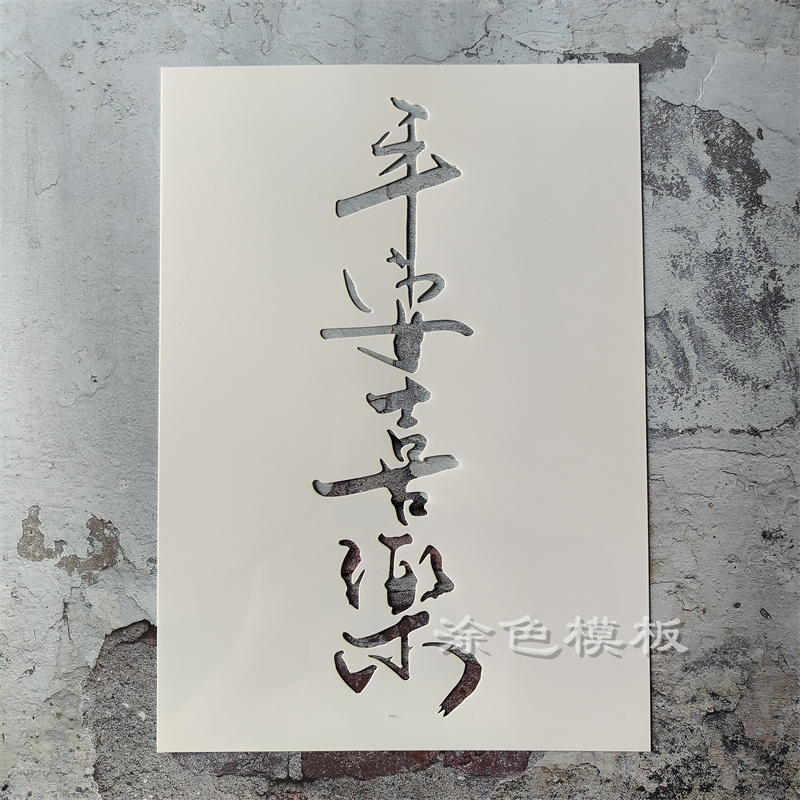 平安喜樂
涂色模板